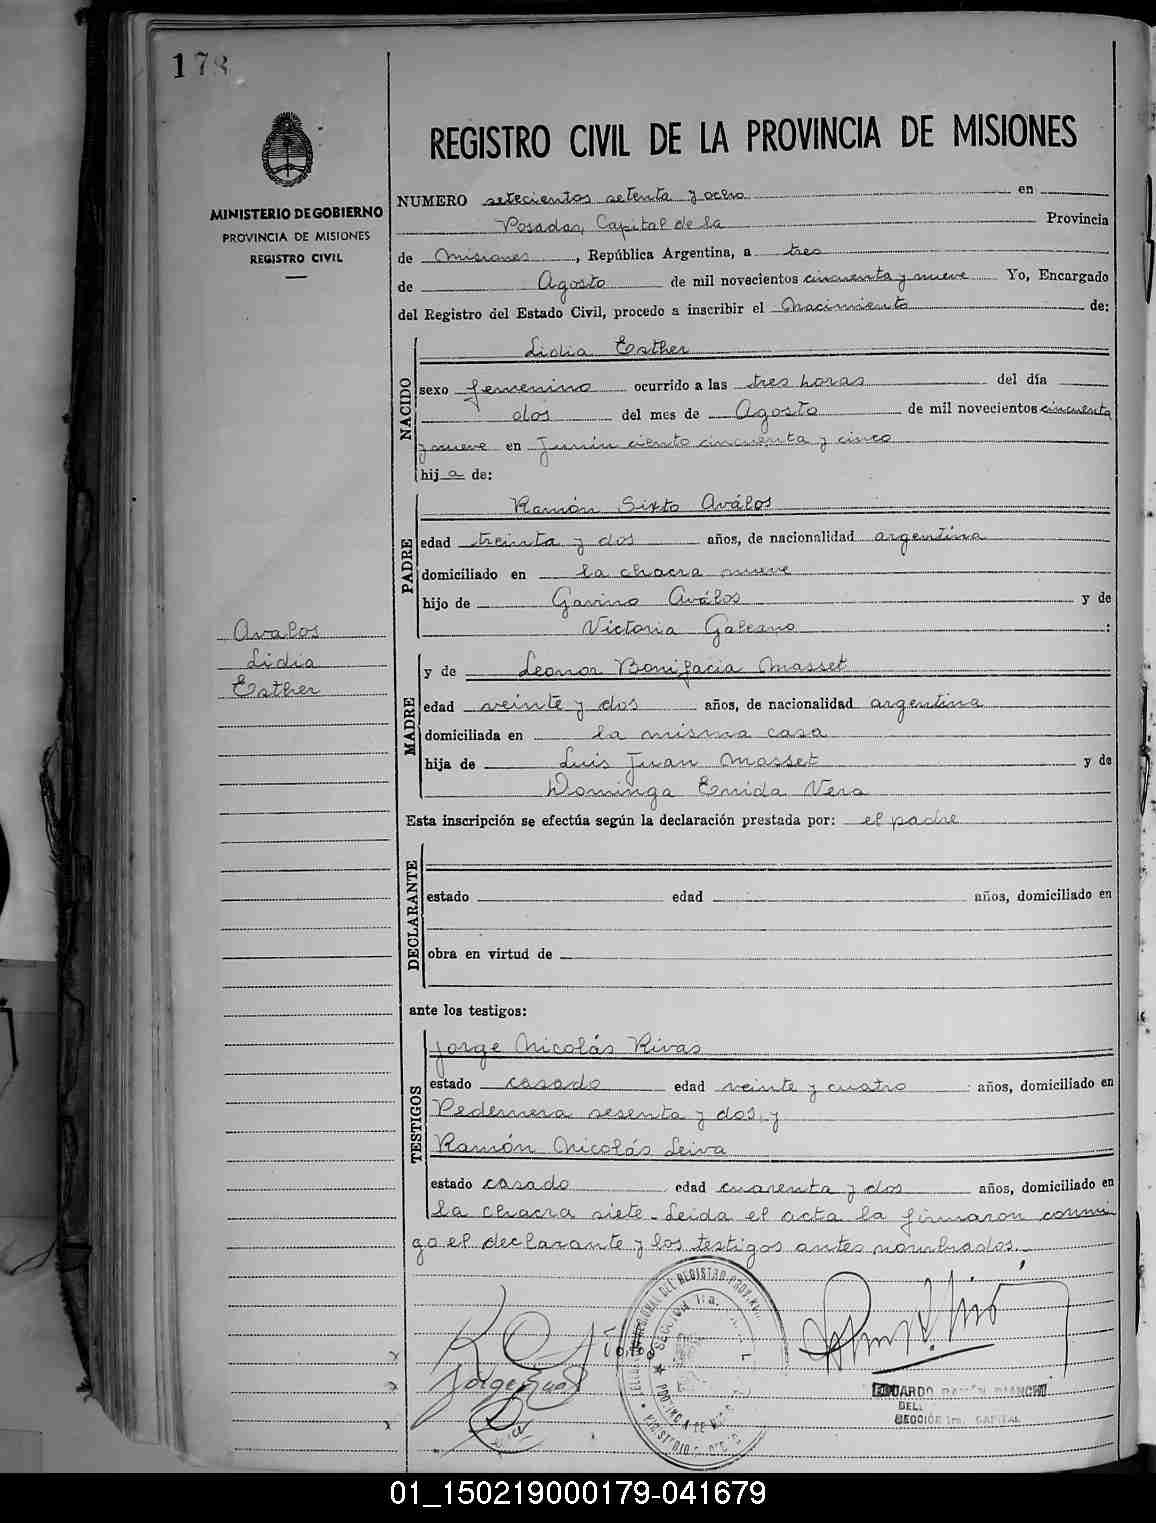 178
MINISTERIO DE GOBIERNO
PROVINCIA DE MISIONES
REGISTRO CIVIL
REGISTRO CIVIL DE LA PROVINCIA DE MISIONES
NUMERO setecientos setenta y ocho en
Posadas, Capital de la Provincia
de Misiones, República Argentina, a tres
de Agosto de mil novecientos cincuenta y nueve Yo, Encargado
del Registro del Estado Civil, procedo a inscribir el Nacimiento de:
NACIDO
Lidia Esther
sexo femenino ocurrido a las tres horas del día
dos del mes de Agosto de mil novecientos cincuenta
y nueve en Junín ciento cincuenta y cinco
hij a de:
PADRE
Ramón Sixto Aválos
edad treinta y dos años, de nacionalidad argentina
domiciliado en la chacra nueve
hijo de Gavino Aválos y de
Victoria Galeano :
Avalos
Lidia
Esther
MADRE
y de Leonor Bonifacia Masset
edad veinte y dos años, de nacionalidad argentina
domiciliada en la misma casa
hija de Luis Juan Masset y de
Dominga Enida Vera
Esta inscripción se efectúa según la declaración prestada por: el padre
DECLARANTE
estado edad años, domiciliado en
obra en virtud de
ante los testigos:
TESTIGOS
Jorge Nicolás Rivas
estado casado edad veinte y cuatro años, domiciliado en
Pedernera sesenta y dos, y
Ramón Nicolás Leiva
estado casado edad cuarenta y dos años, domiciliado en
la chacra siete. Leida el acta la firmaron conmi-
go el declarante y los testigos antes nombrados.
REGIONAL DEL REGISTRO PROV.
SECCION 1ra.
PROVINCIA DE MIS
MINISTERIO
EDUARDO RAMÓN BIANCHI
DEL.
SECCIÓN 1ra. CAPITAL
01_150219000179-041679